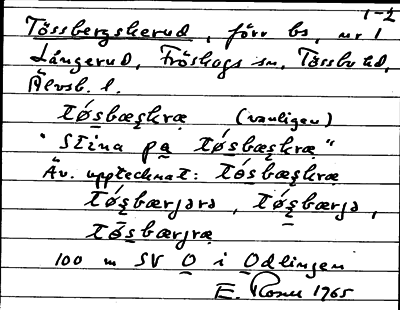 1-2
Tössbergskerud, förr bs, nr 1
Långerud, Fröskogs sn, Tössbo hd,
Älvsb. l.
tǿsbæs̨kræ (vanligen)
"Stina pa tǿsbæs̨kræ"
Äv. upptecknat: tǿsbæs̨kræ
tǿs̨bærjara, tǿs̨bærja,
tǿsbærjræ
100 m SV O i Ödlingen
E. 1965